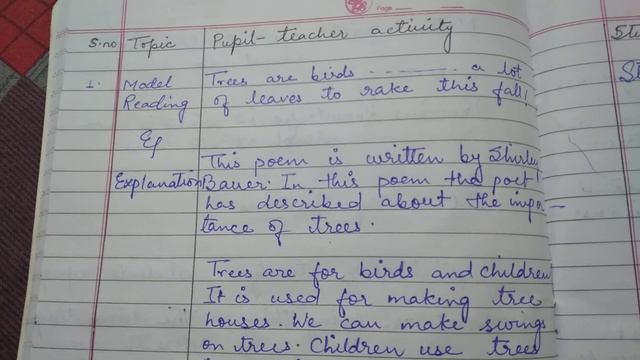 Page
S.no Topic Pupil-teacher activity
1. Model Reading Trees are birds ------- a lot
of leaves to rake this fall!
&
This poem is written by Shirley
Explanation Bauer. In this poem the poet
has described about the impor-
tance of trees.
Trees are for birds and children
It is used for making tree
houses. We can make swings
on trees. Children use trees